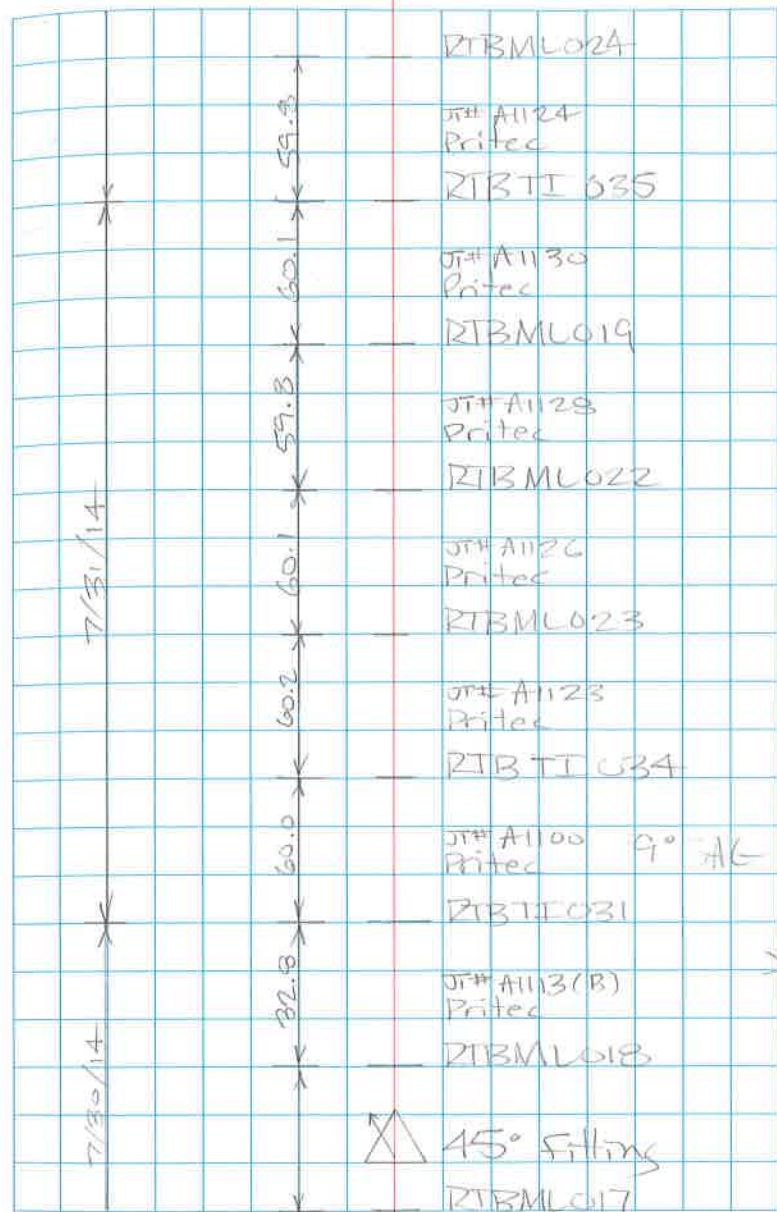 RTBML024
59.8
JT# A1124
Pritec
RTBTI 035
60.1
JT# A1130
Pritec
RTBML019
59.8
JT# A1128
Pritec
RTBML022
7/31/14
60.1
JT# A1126
Pritec
RTBML023
60.2
JT# A1123
Pritec
RTBTI 034
60.0
JT# A1100 9°
Pritec
RTBTI031
32.8
JT# A1113(B)
Pritec
RTBML018
7/30/14
45° Fitting
RTBML017